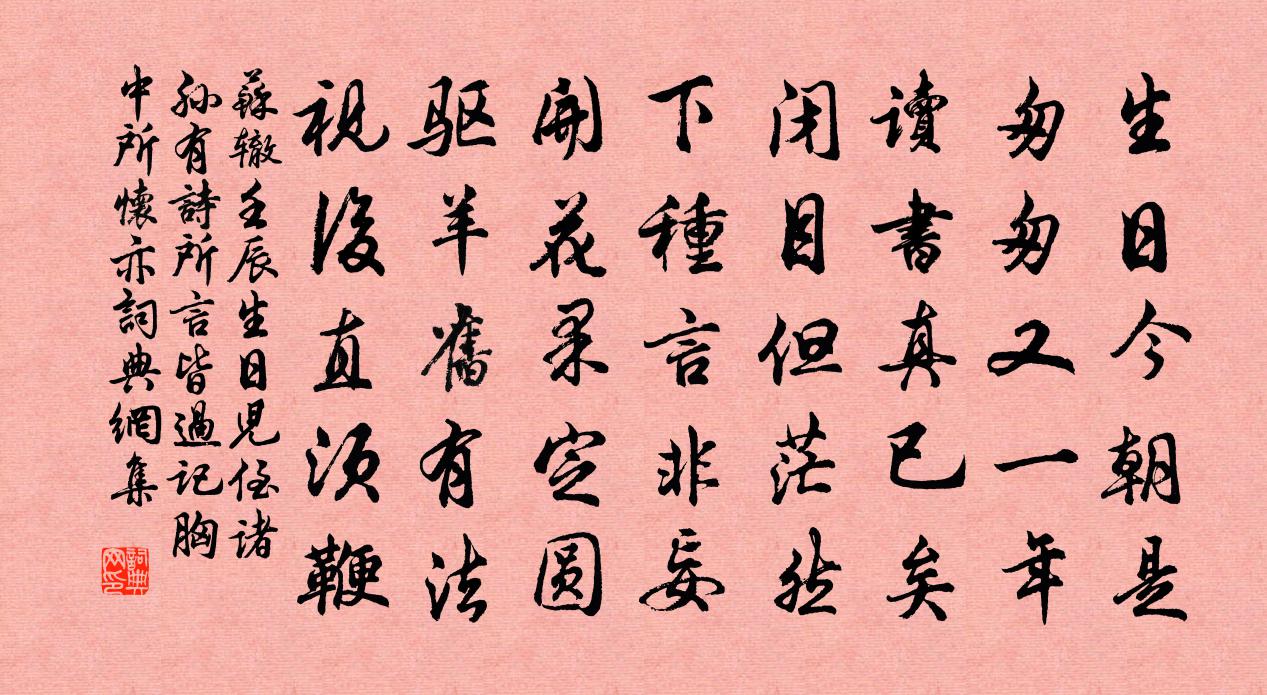 生日今朝是
匆匆又一年
讀書真已矣
闭目但茫然
下種言非妄
開花果定圆
驱羊舊有法
視後直须鞭
蘇辙壬辰生日児侄诸
孙有詩所言皆過记胸
中所懷亦詞典網集
詞典网印